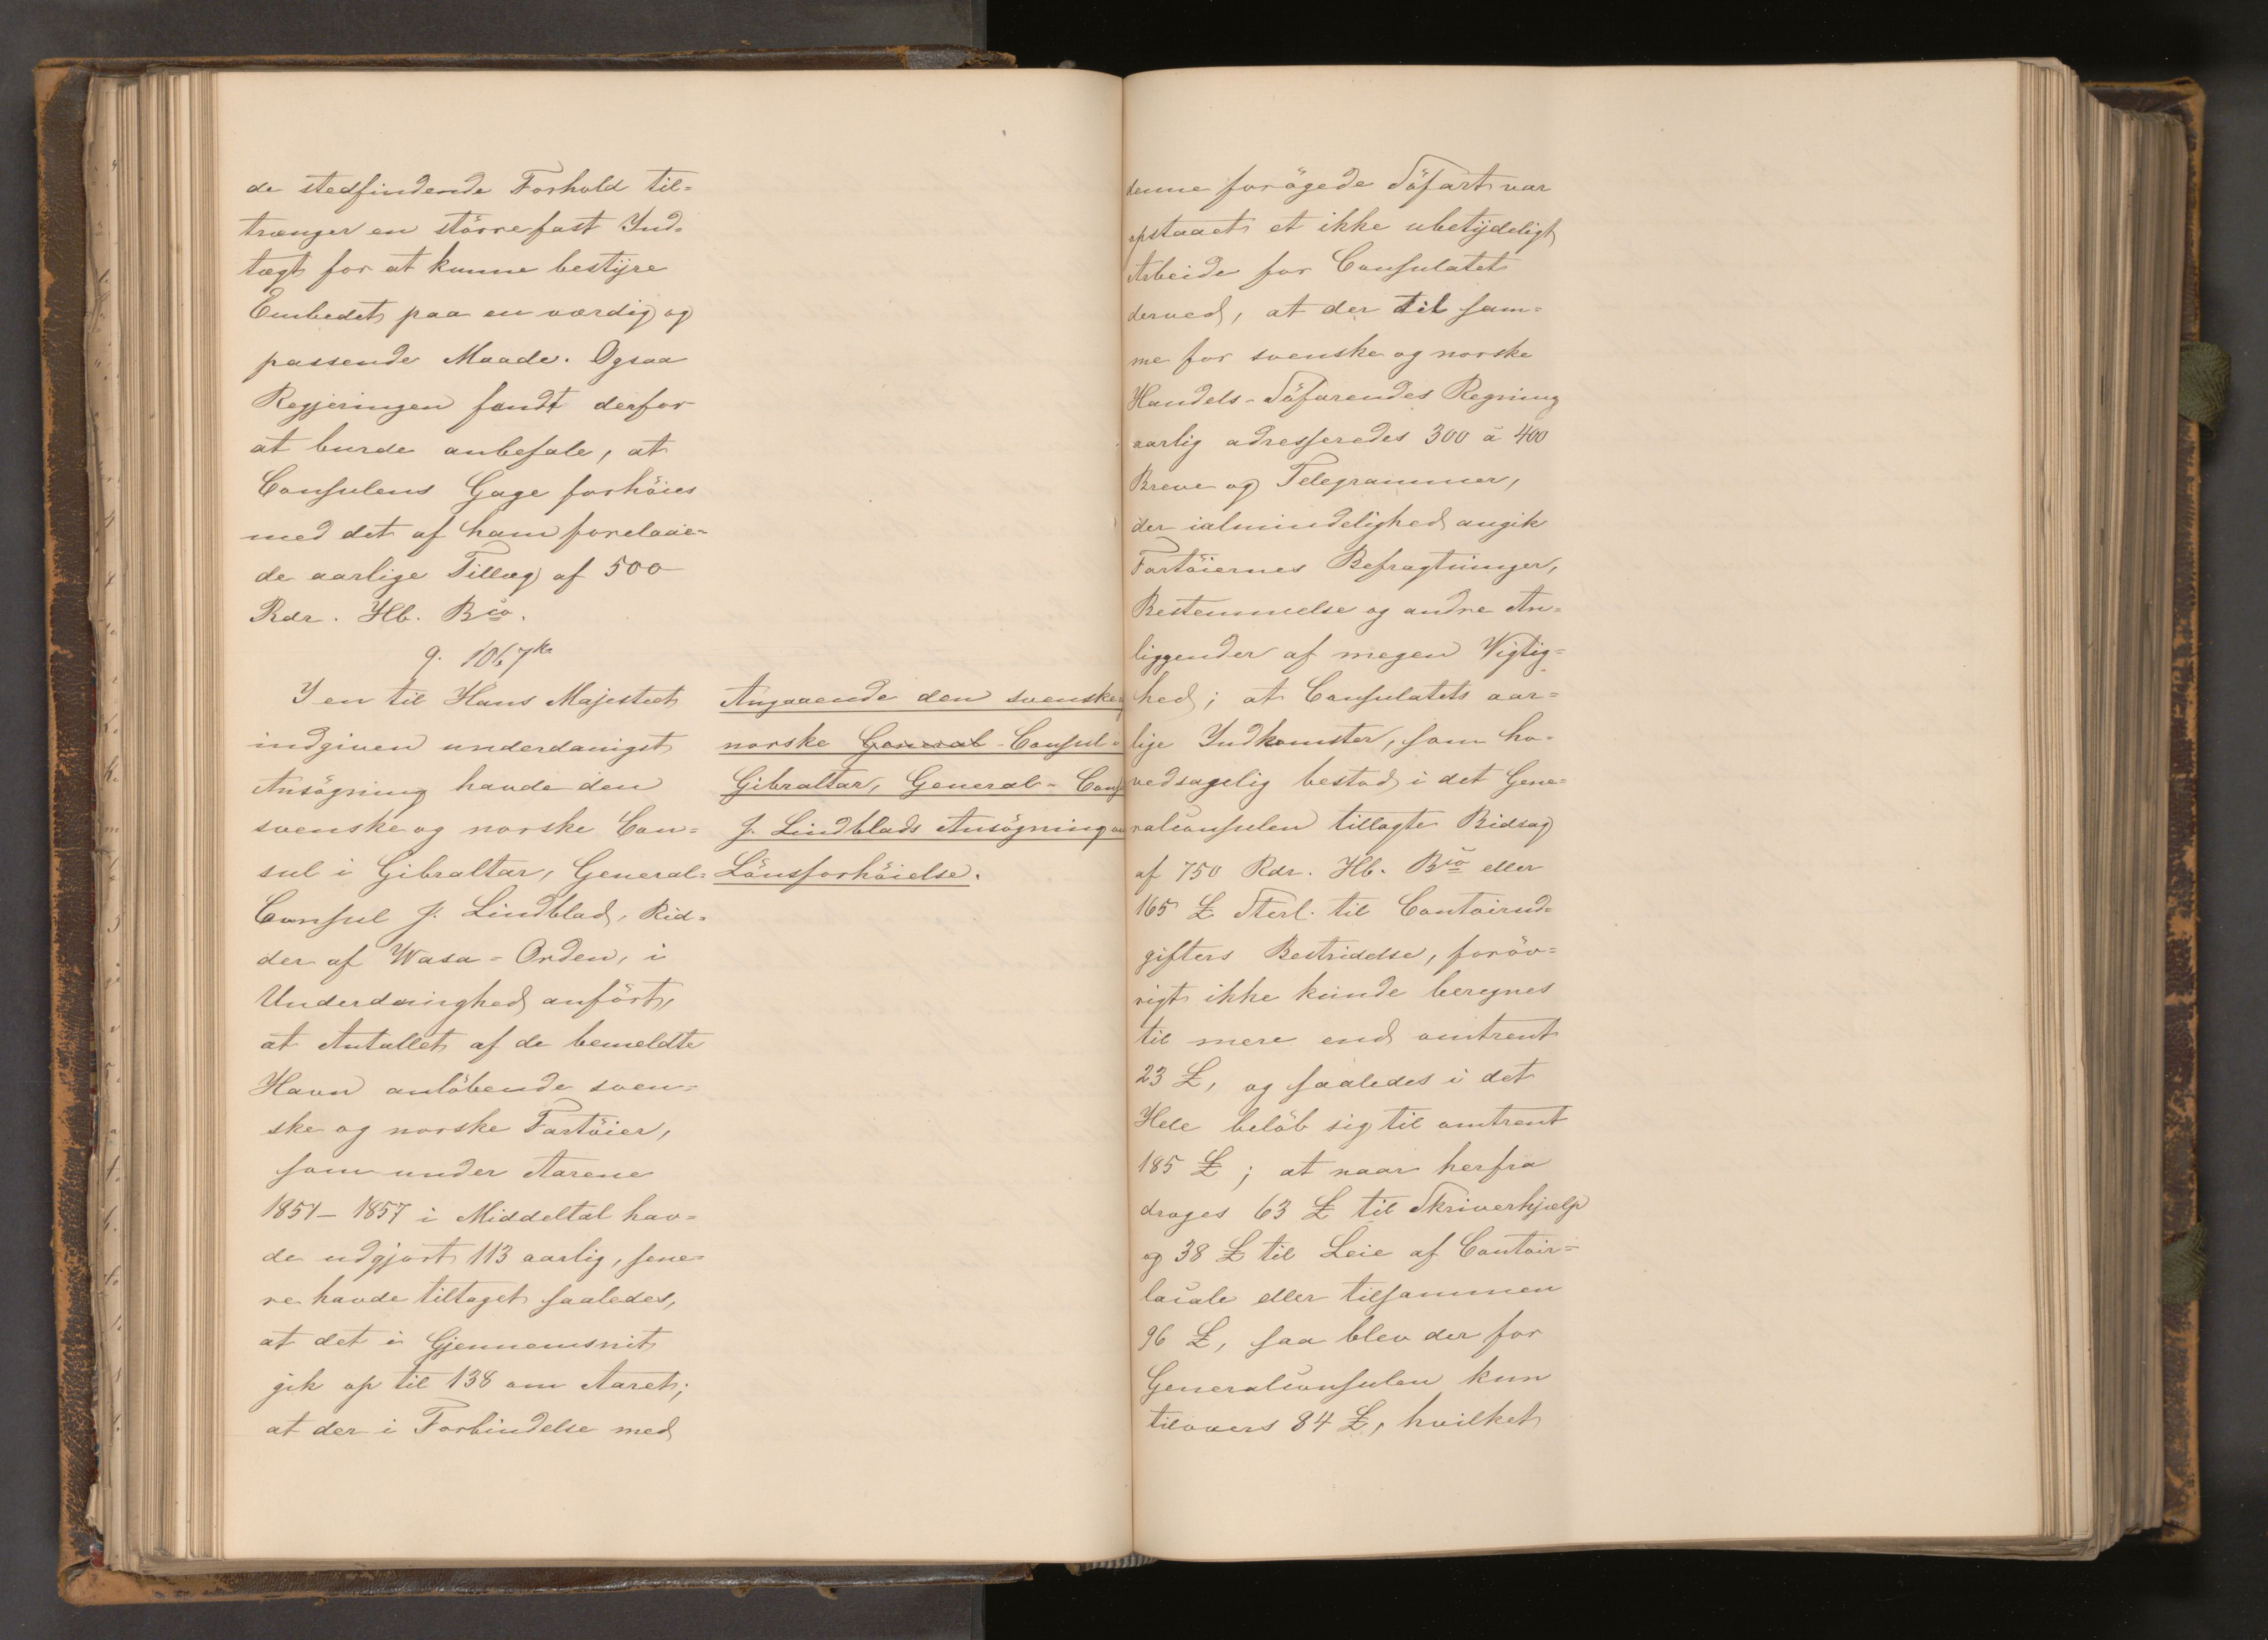 de stedfindende Forhold til=
trænger en större fast Ind=
tægt for at kunne bestyre
Embedet paa en værdig og
passende Maade. Ogsaa
Regjeringen fandt derfor
at burde anbefale, at
Consulens Gage forhöies
med det af ham foreslaae=
de aarlige Tillæg af 500
Rdr. Hb. Bco.
9. 1067
I en til Hans Majestæt
indgiven underdanigst
Ansögning havde den
svenske og norske Con=
sul i Gibraltar, General=
Consul J. Lindblad, Rid=
der af Wasa=Orden, i
Underdanighed anfört,
at Antallet af de bemeldte
Havn anlöbende sven=
ske og norske Fartöier,
som under Aarene
1854–1857 i Middeltal hav=
de udgjort 113 aarlig, sene=
re havde tiltaget saaledes,
at det i Gjennemsnit
gik op til 138 om Aaret;
at der i Forbindelse med
Angaaende den svenske
norske General-Consul i
Gibraltar, General-Cons
J. Lindblads Ansögning
Lönsforhöielse.
denne forögede Söfart var
opstaaet et ikke ubetydeligt
Arbeide for Consulatet
derved, at der til sam=
me for svenske og norske
Handels-Söfarendes Regning
aarlig adresseredes 300 à 400
Breve og Telegrammer,
der ialmindelighed angik
Fartöiernes Befragtninger,
Bestemmelse og andre An=
liggender af megen Vigtig=
hed; at Consulatets aar=
lige Indkomster, som ho=
vedsagelig bestod i det Gene=
ralconsulen tillagte Bidrag
af 750 Rdr. Hb. Bco eller
165 £ Sterl. til Contoirud=
gifters Bestridelse, foröv=
rigt ikke kunde beregnes
til mere end omtrent
23 £, og saaledes i det
Hele belöb sig til omtrent
185 £; at naar herfra
droges 63 £ til Skriverhjælp
og 38 £ til Leie af Contoir=
locale eller tilsammen
96 £, saa blev der for
Generalconsulen kun
tilovers 84 £, hvilket